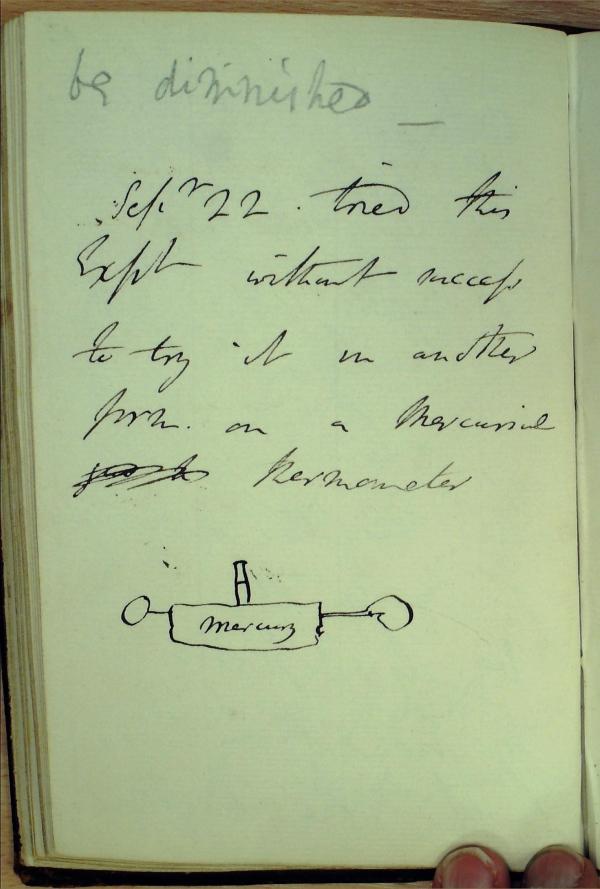 be diminished —
Sepr 22. tried this
Expt without success
to try it in another
form. on a Mercurial
thermometer
Mercury